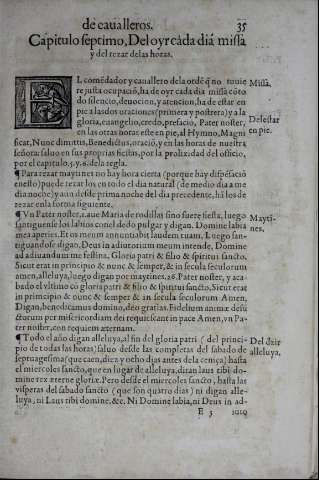 de caualleros. 35
Capitulo septimo, Del oyr cada dia missa
y del rezar de las horas.
EL comẽdador y cauallero de la ordẽ q̃ no tuuie Missa.
re justa ocupaciõ, ha de oyr cada dia missa cõ to
do silencio, deuocion, y atencion, ha de estar en
pie a las dos oraciones (primera y postrera) y a la
gloria, euangelio, credo, prefacio, Pater noster, Del estar
en las otras horas este en pie, al Hymno, Magni en pie.
ficat, Nunc dimittis, Benedictus, oraciõ, y en las horas de nuestra
señora: saluo en sus proprias fiestas, por la prolixidad del officio,
por el capitulo.5.y.8.de la regla.
¶ Para rezar maytines no hay hora cierta (porque hay dispẽsaciõ
en esto) puede rezar los en todo el dia natural (de medio dia a me
dia noche) y aun desde prima noche del dia precedente, hã los de
rezar en la forma siguiente.
¶ Vn Pater noster, z aue Maria de rodillas sino fuere fiesta, luego Mayti-
santiguense los labios con el dedo pulgar y digan. Domine labia nes.
mea aperies. Et os meum annuntiabit laudem tuam. Luego san-
tiguandose digan, Deus in adiutorium meum intende, Domine
ad adiuuandum me festina, Gloria patri & filio & spiritui sancto.
Sicut erat in principio & nunc & semper, & in secula seculorum
amen, alleluya, luego digan por maytines, 26. Pater noster, y aca-
bado el vltimo cõ gloria patri & filio & spiritui sancto, Sicut erat
in principio & nunc & semper & in secula seculorum Amen,
Digan, benedicamus domino, deo gratias. Fidelium animæ defũ
ctorum per misericordiam dei requiescant in pace Amen, vn Pa-
ter noster, con requiem æternam.
¶ Todo el año digan alleluya, al fin del gloria patri (del princi- Del dezir
pio de todas las horas) saluo desde las completas del sabado de alleluya.
septuagesima (que caen, diez y ocho dias antes de la ceniza) hasta
el miercoles sancto, que en lugar de alleluya, diran laus tibi do-
mine rex æterne gloriæ. Pero desde el miercoles sancto, hasta las
visperas del sabado sancto (que son quatro dias) ni digan alle-
luya, ni Laus tibi domine, &c. Ni Domine labia, ni Deus in ad-
E 3